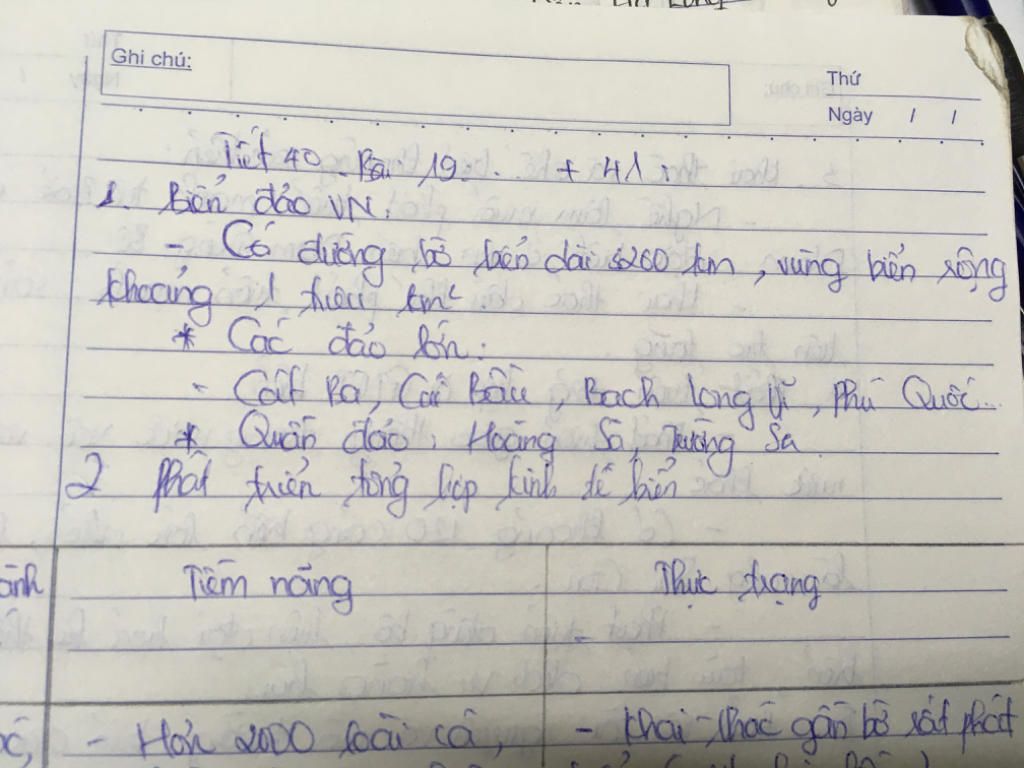 Ghi chú:
Thứ
Ngày / /
Tiết 40 Bài 19. + 41
1. Biển đảo VN.
- Có đường bờ biển dài 3260 km, vùng biển rộng
khoảng 1 triệu km²
* Các đảo lớn:
- Cát Bà, Cái Bầu, Bạch Long Vĩ, Phú Quốc...
* Quần đảo: Hoàng Sa, Trường Sa
2 Phát triển tổng hợp kinh tế biển
ành
Tiềm năng
Thực trạng
-
- Hơn 2000 loài cá,
- Khai thác gần bờ sát phát